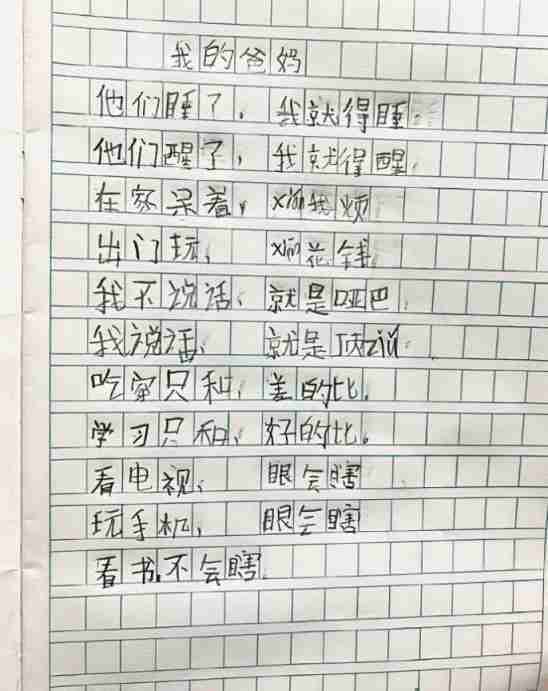 我的爸妈
他们睡了。我就得睡。
他们醒了，我就得醒。
在家呆着，xián我烦
出门玩，xián花钱
我不说话，就是哑巴。
我说话，就是顶zuǐ。
吃穿只和，差的比。
学习只和，好的比。
看电视，眼会瞎
玩手机，眼会瞎
看书，不会瞎。